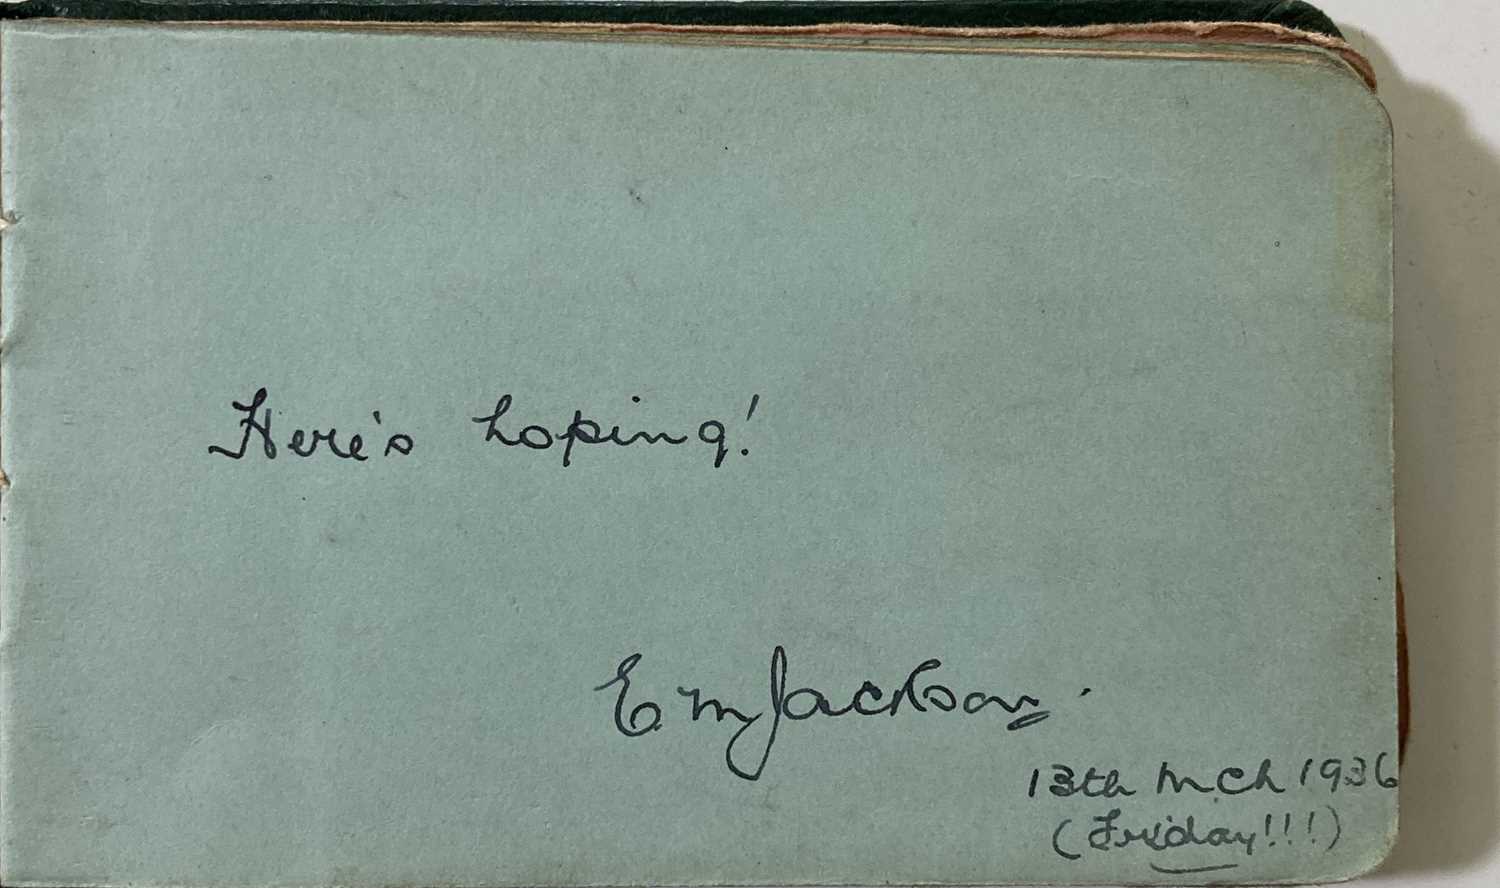 Here's hoping!
E M Jackson.
13th Mch 1936
(Friday!!!)